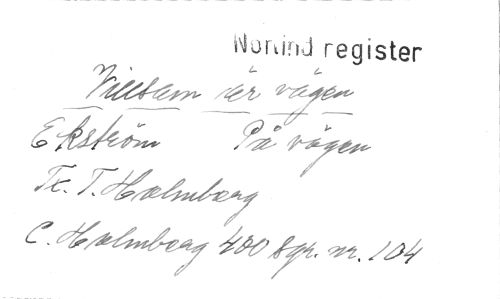 Nordind register
Villsam är vägen
Ekström På vägen
Tx. T. Holmberg
C. Holmberg 400 Sgr. nr. 104